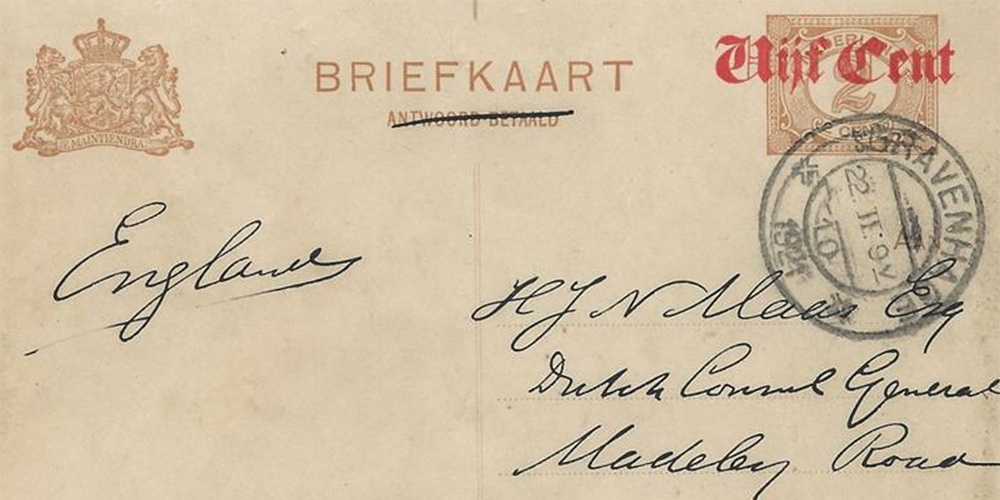 Vijf Cent
2
CENT
BRIEFKAART
ANTWOORD BETAALD
JE MAINTIENDRAI
'S-GRAVENHAGE
22.II.
1921
England
H J N Maas Esq
Dutch Consul General
Madeley Road